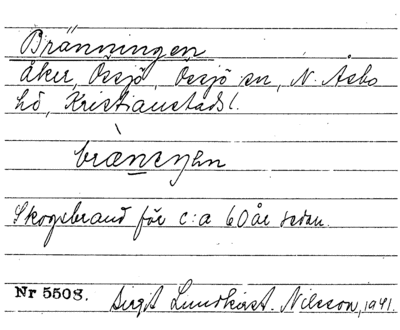 Bränningen
Åker, Össjö, Össjö sn, N. Åsbo
hd, Kristianstads l.
brænɪŋən
Skogsbrand för c:a 60 år sedan.
Nr 5508. Birgit Lundkvist-Nilsson, 1941.